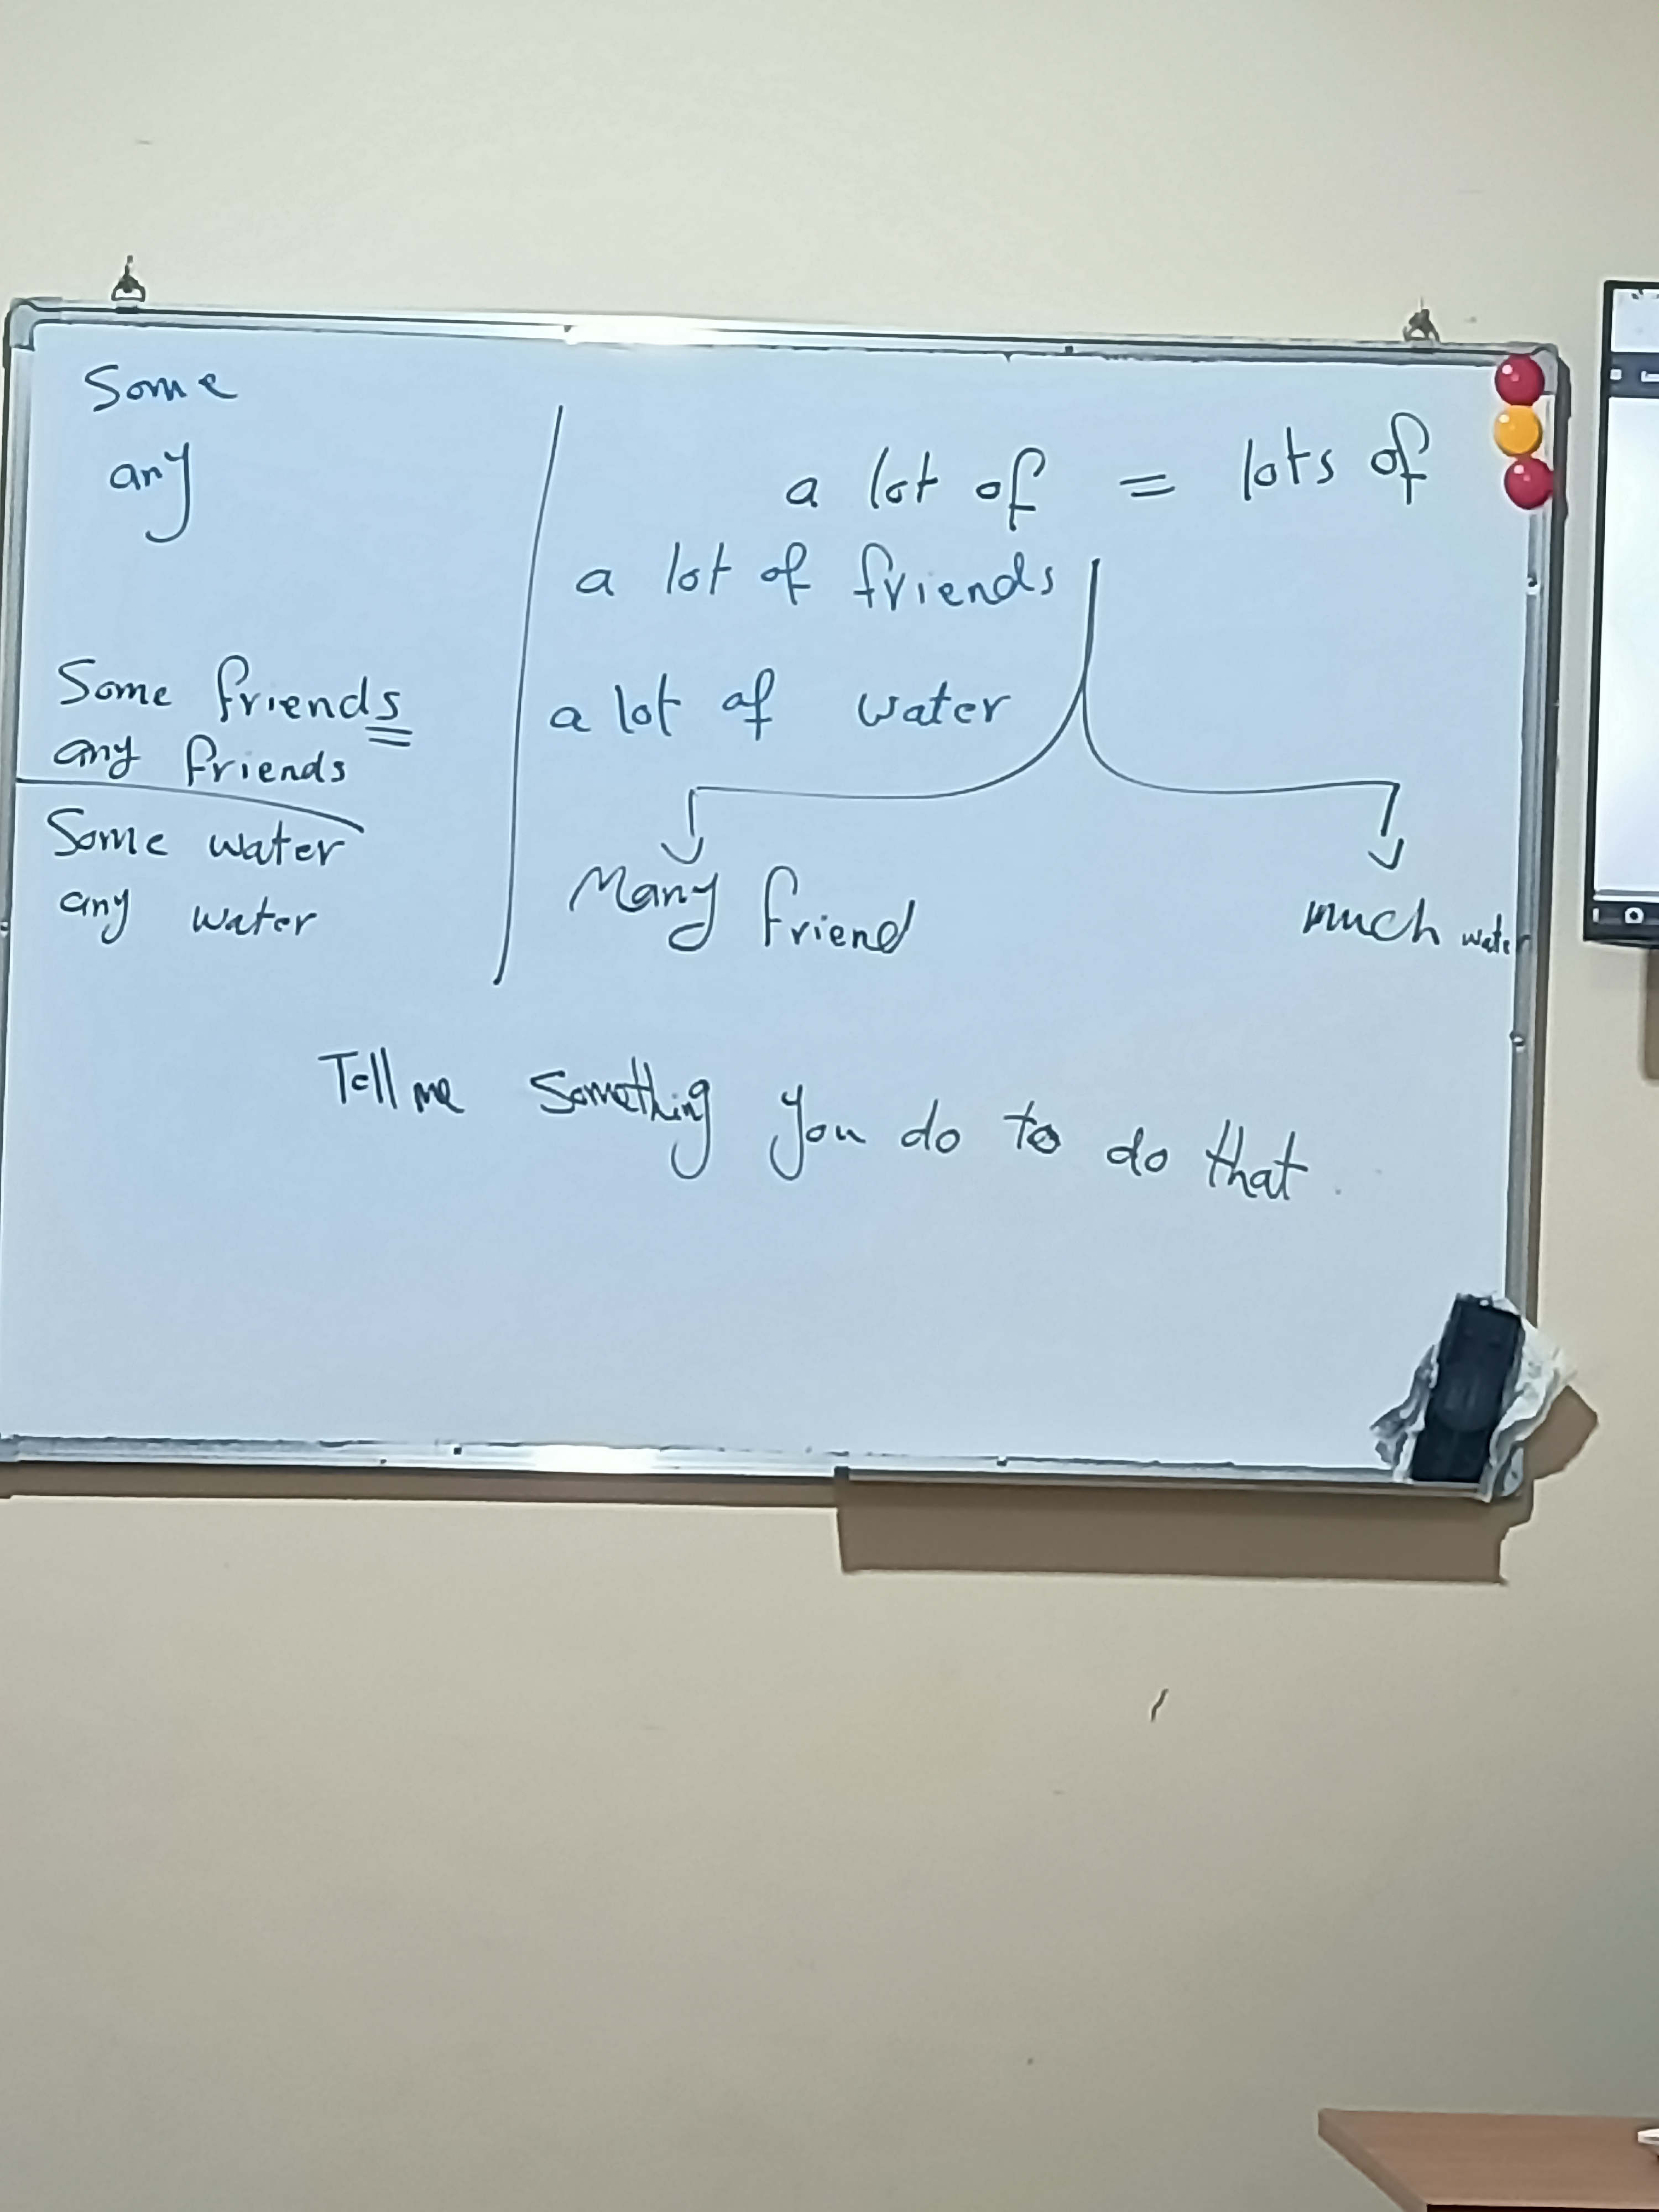 Some
any
Some friends
any friends
Some water
any water
a lot of = lots of
a lot of friends
a lot of water
Many friend
much water
Tell me something you do to do that.